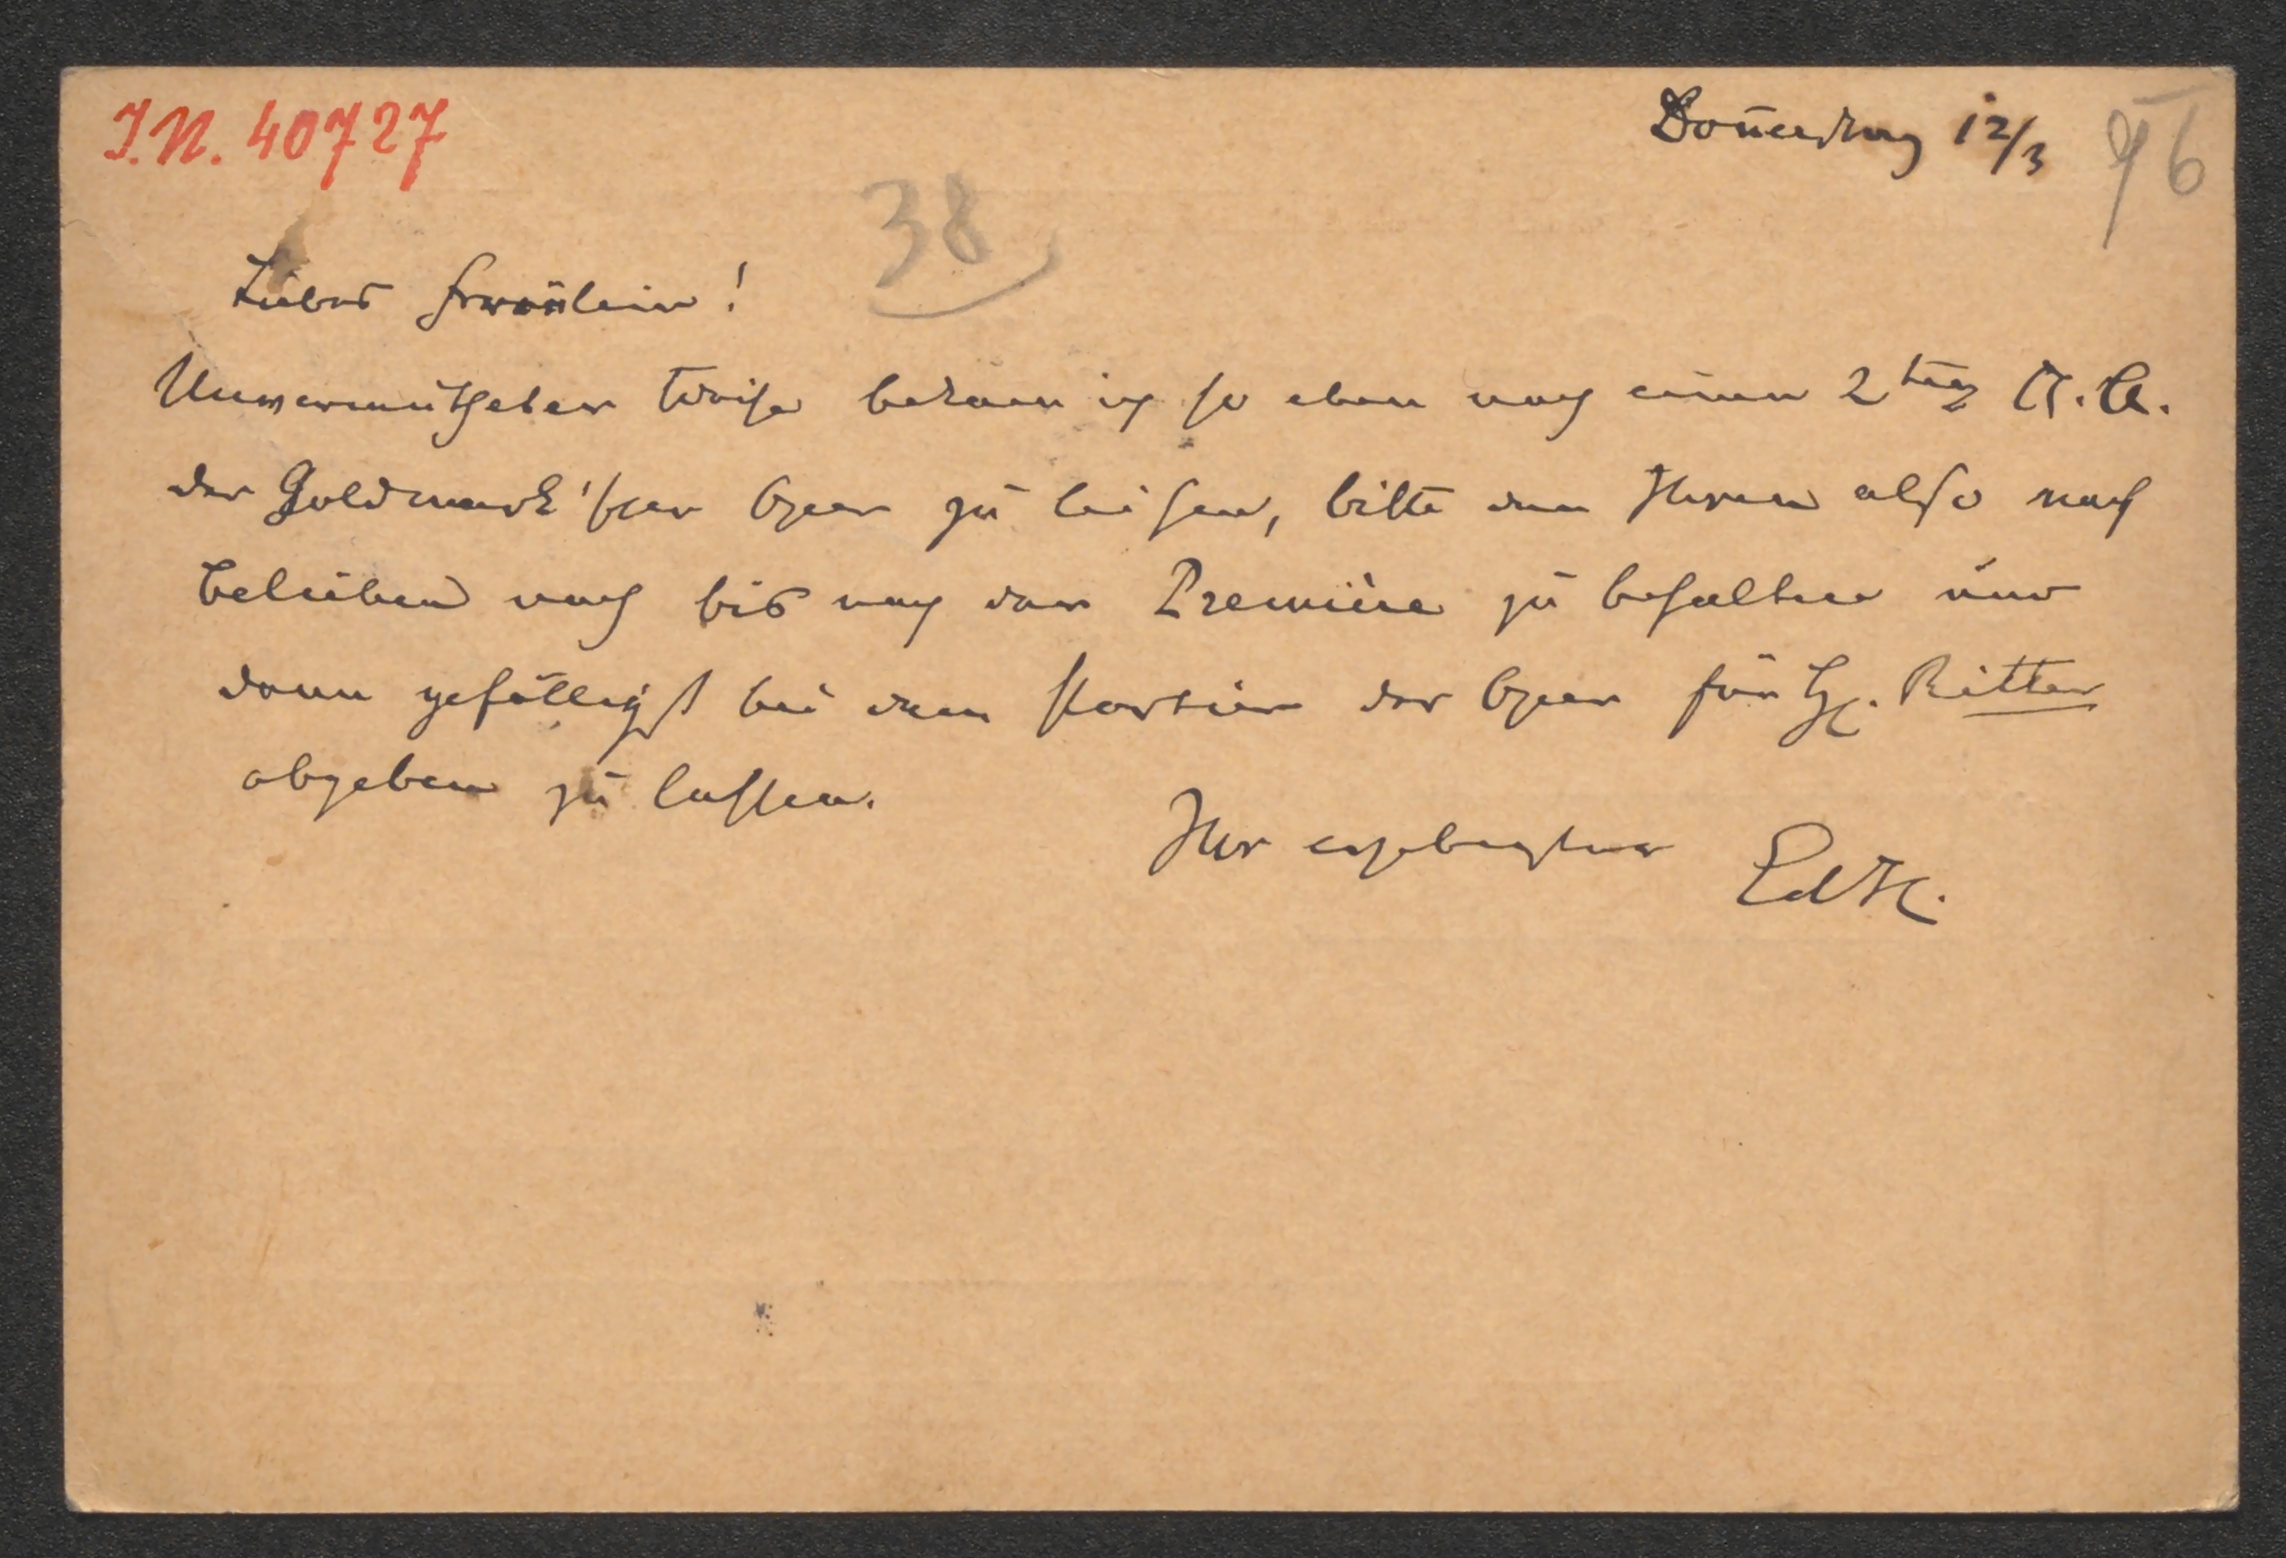 I.N. 40727
Donnerstag 12/3 96
38
Liebes Fräulein!
Unvermutheter Weise bekam ich so eben noch einen 2ten K. A.
der Goldmark'schen Oper zu leihen, bitte den Ihren also nach
Belieben noch bis nach der Première zu behalten und
dann gefälligst bei dem Portier der Oper für H. Ritter
abgeben zu lassen.
Ihr ergebenster EdH.